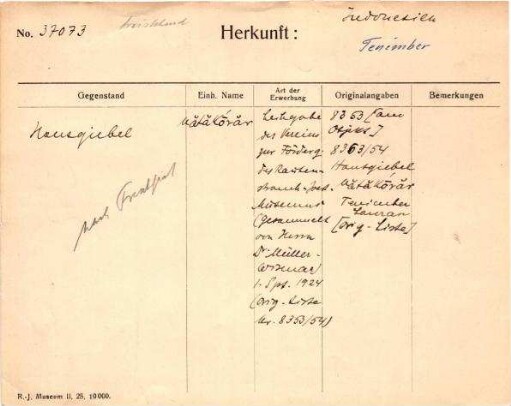 No. 37073
Herkunft:
Indonesien
Tenimber
Gegenstand
Einh. Name
Art der Erwerbung
Originalangaben
Bemerkungen
Hausgiebel
Mătăkōrăr
Leihgabe
des Vereins
zur Förderg
des Rauten-
strauch-Joest-
Museums
(Gesammelt
von Herrn
Dr Müller-
Wismar)
1. Spt. 1924
(Orig-Liste
Nr. 8353/54)
8353 [am
Objekt]
8363/54
Hausgiebel
Mătăkōrăr
Tenimber
[Orig-Liste]
nach
R.-J. Museum II, 25, 10 000.